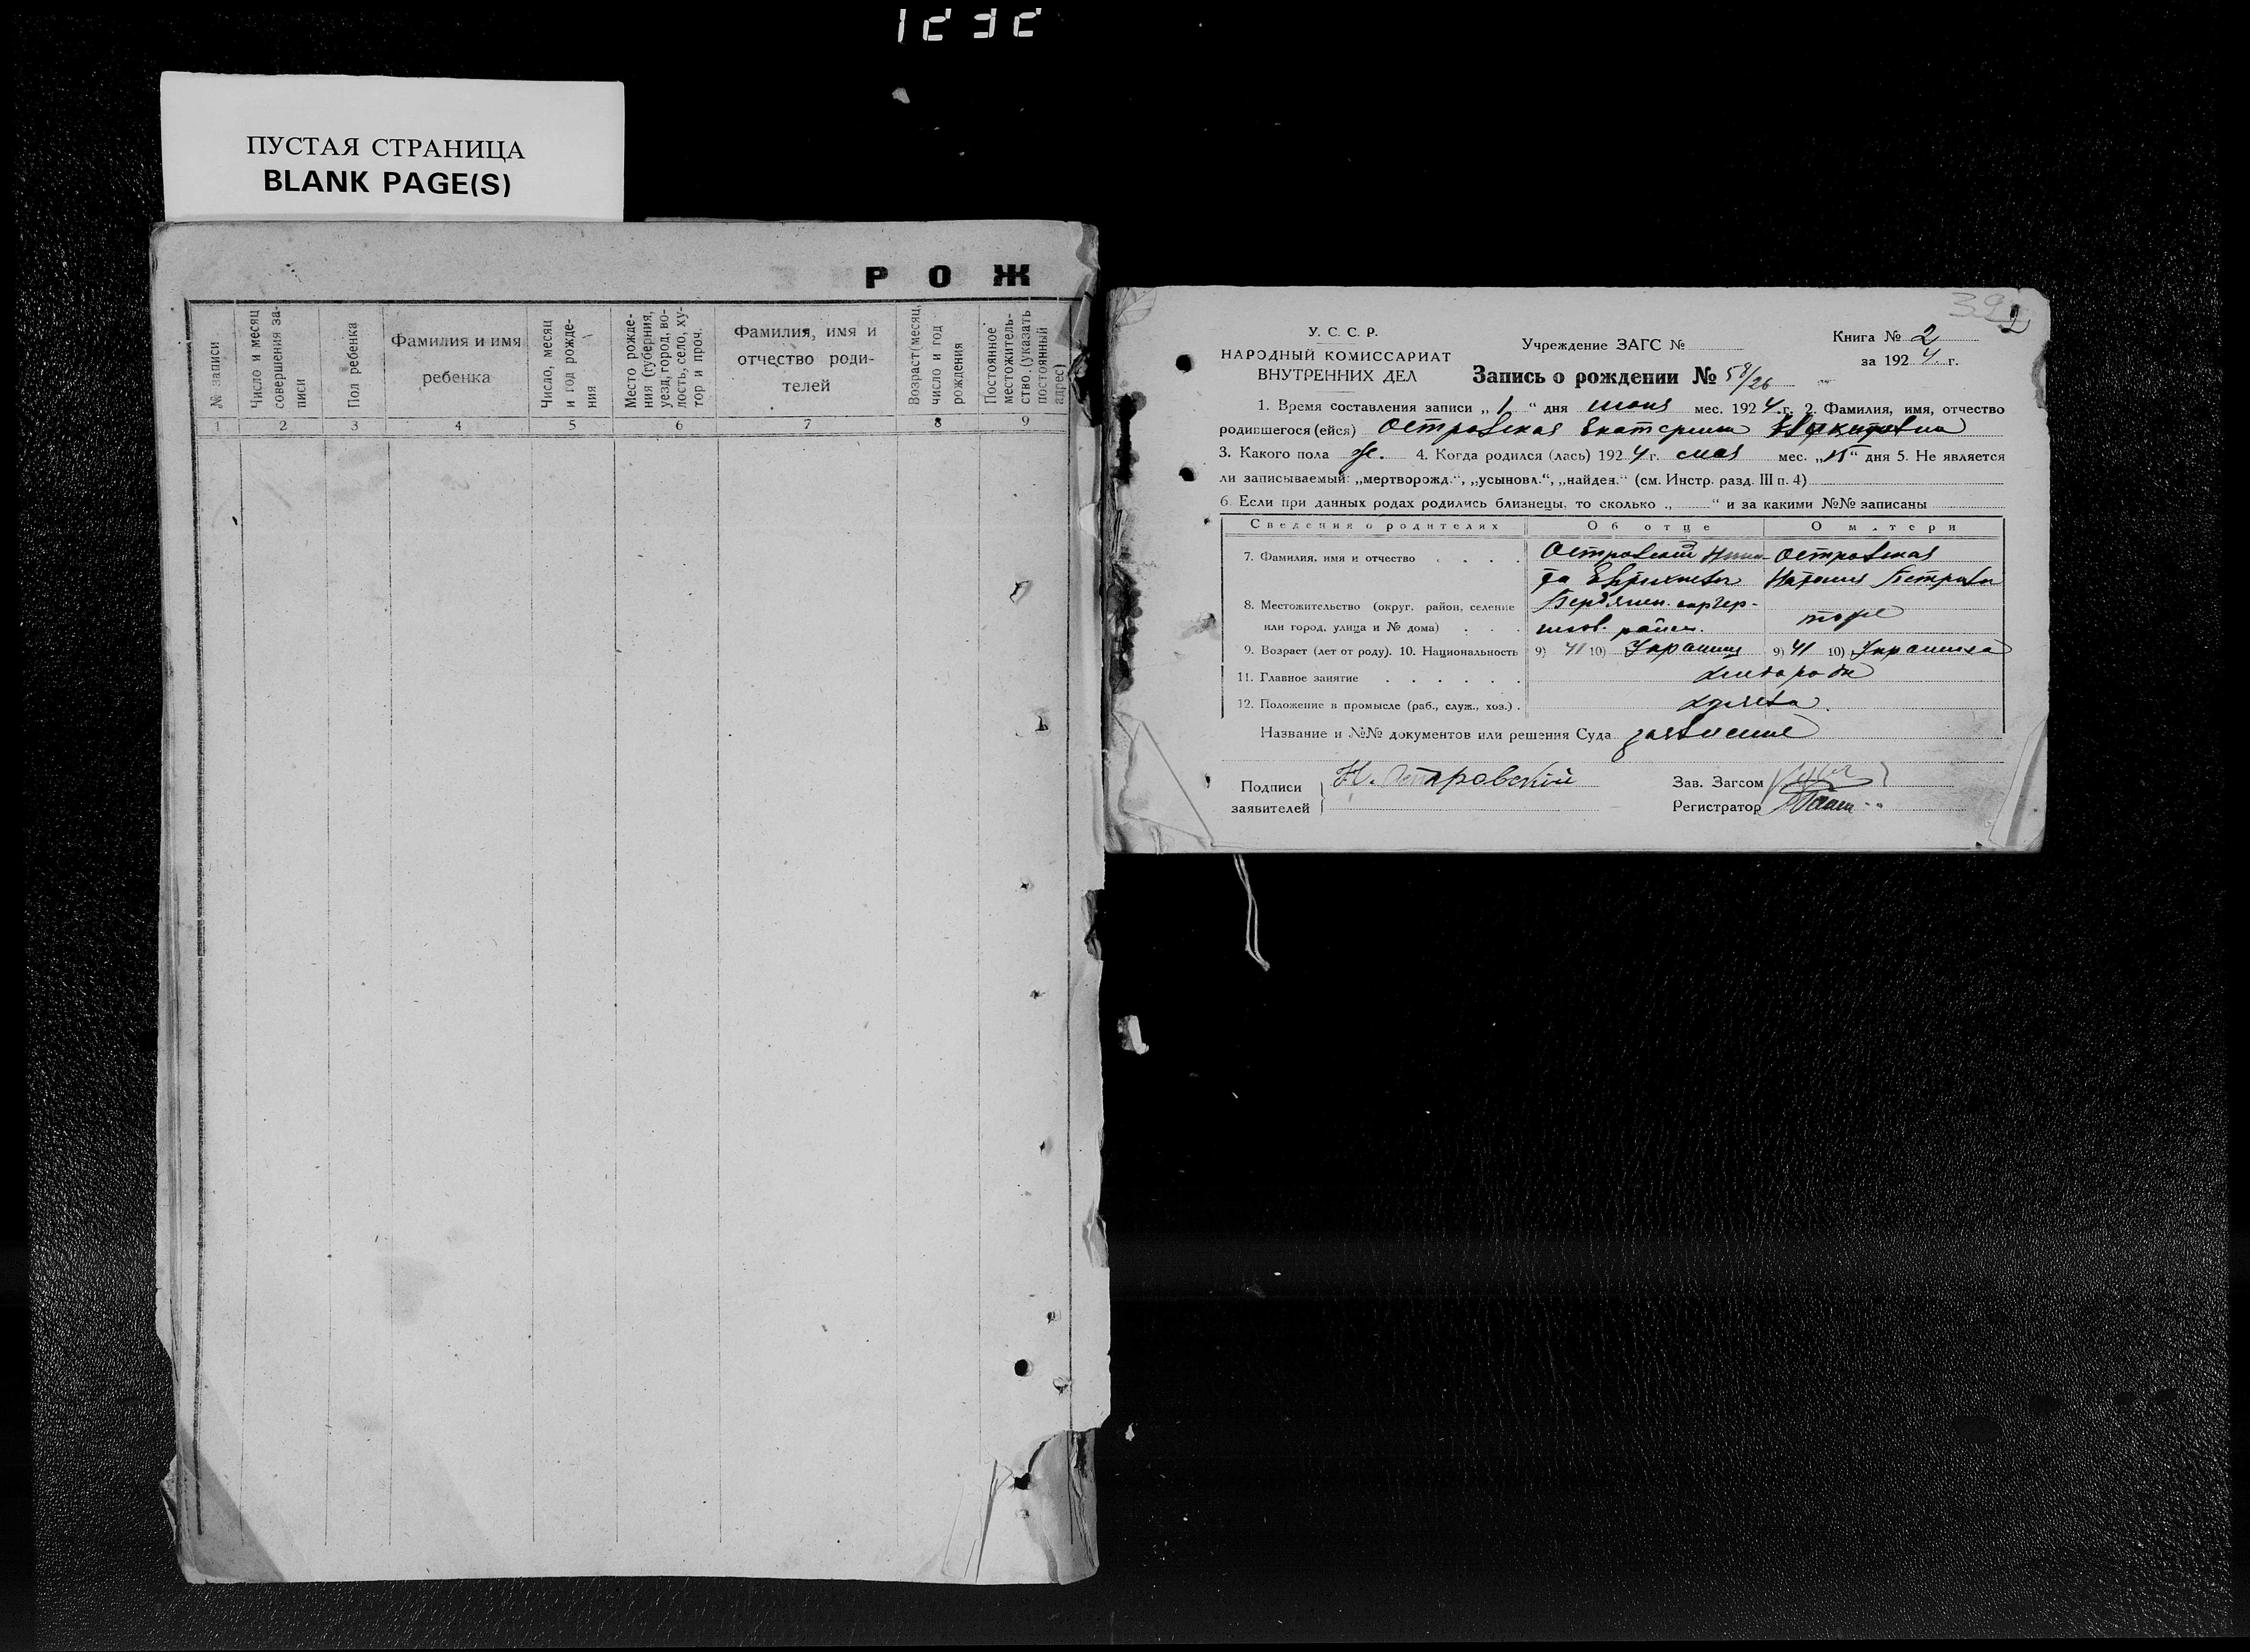 ПУСТАЯ СТРАНИЦА
BLANK PAGE(S)
РОЖ
№ записи
Число и месяц совершения за-писи
Пол ребенка
Фамилия и имя
ребенка
Число, месяц и год рожде-ния
Место рожде-ния (губерния, уезд, город, во-лость, село, ху-тор и проч.
Фамилия, имя и
отчество роди-
телей
Возраст (месяц, число и год рождения
Постоянное местожитель-ство. (указать постоянный адрес)
1 2 3 4 5 6 7 8 9
2
У. С. С. Р.
НАРОДНЫЙ КОМИССАРИАТ
ВНУТРЕННИХ ДЕЛ
Учреждение ЗАГС №
Книга № 2
за 1924 г.
Запись о рождении № 58/26
1. Время составления записи „ 1 “ дня июня мес. 1924 г. 2. Фамилия, имя, отчество
родившегося (ейся) Островская Екатерина Никитовна
3. Какого пола ж. 4. Когда родился (лась) 1924 г. мая мес. „15“ дня 5. Не является
ли записываемый: „мертворожд.“, „усыновл.“, „найден.“ (см. Инстр. разд. III п. 4)
6. Если при данных родах родились близнецы, то сколько „ “ и за какими №№ записаны
Сведения о родителях Об отце О матери
7. Фамилия, имя и отчество Островский Ники- Островская
та Петров
8. Местожительство (округ, район, селение Бердянск.
или город, улица и № дома) район. тоже
9. Возраст (лет от роду). 10. Национальность 9) 41 10) Украинец 9) 41 10) Украинка
11. Главное занятие хлебороб
12. Положение в промысле (раб., служ., хоз.) хозяева
Название и №№ документов или решения Суда заявление
Подписи
заявителей
Н. Островскій
Зав. Загсом
Регистратор